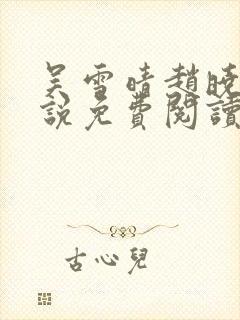 吴雪晴趙曉
說免費閱讀
古心兒